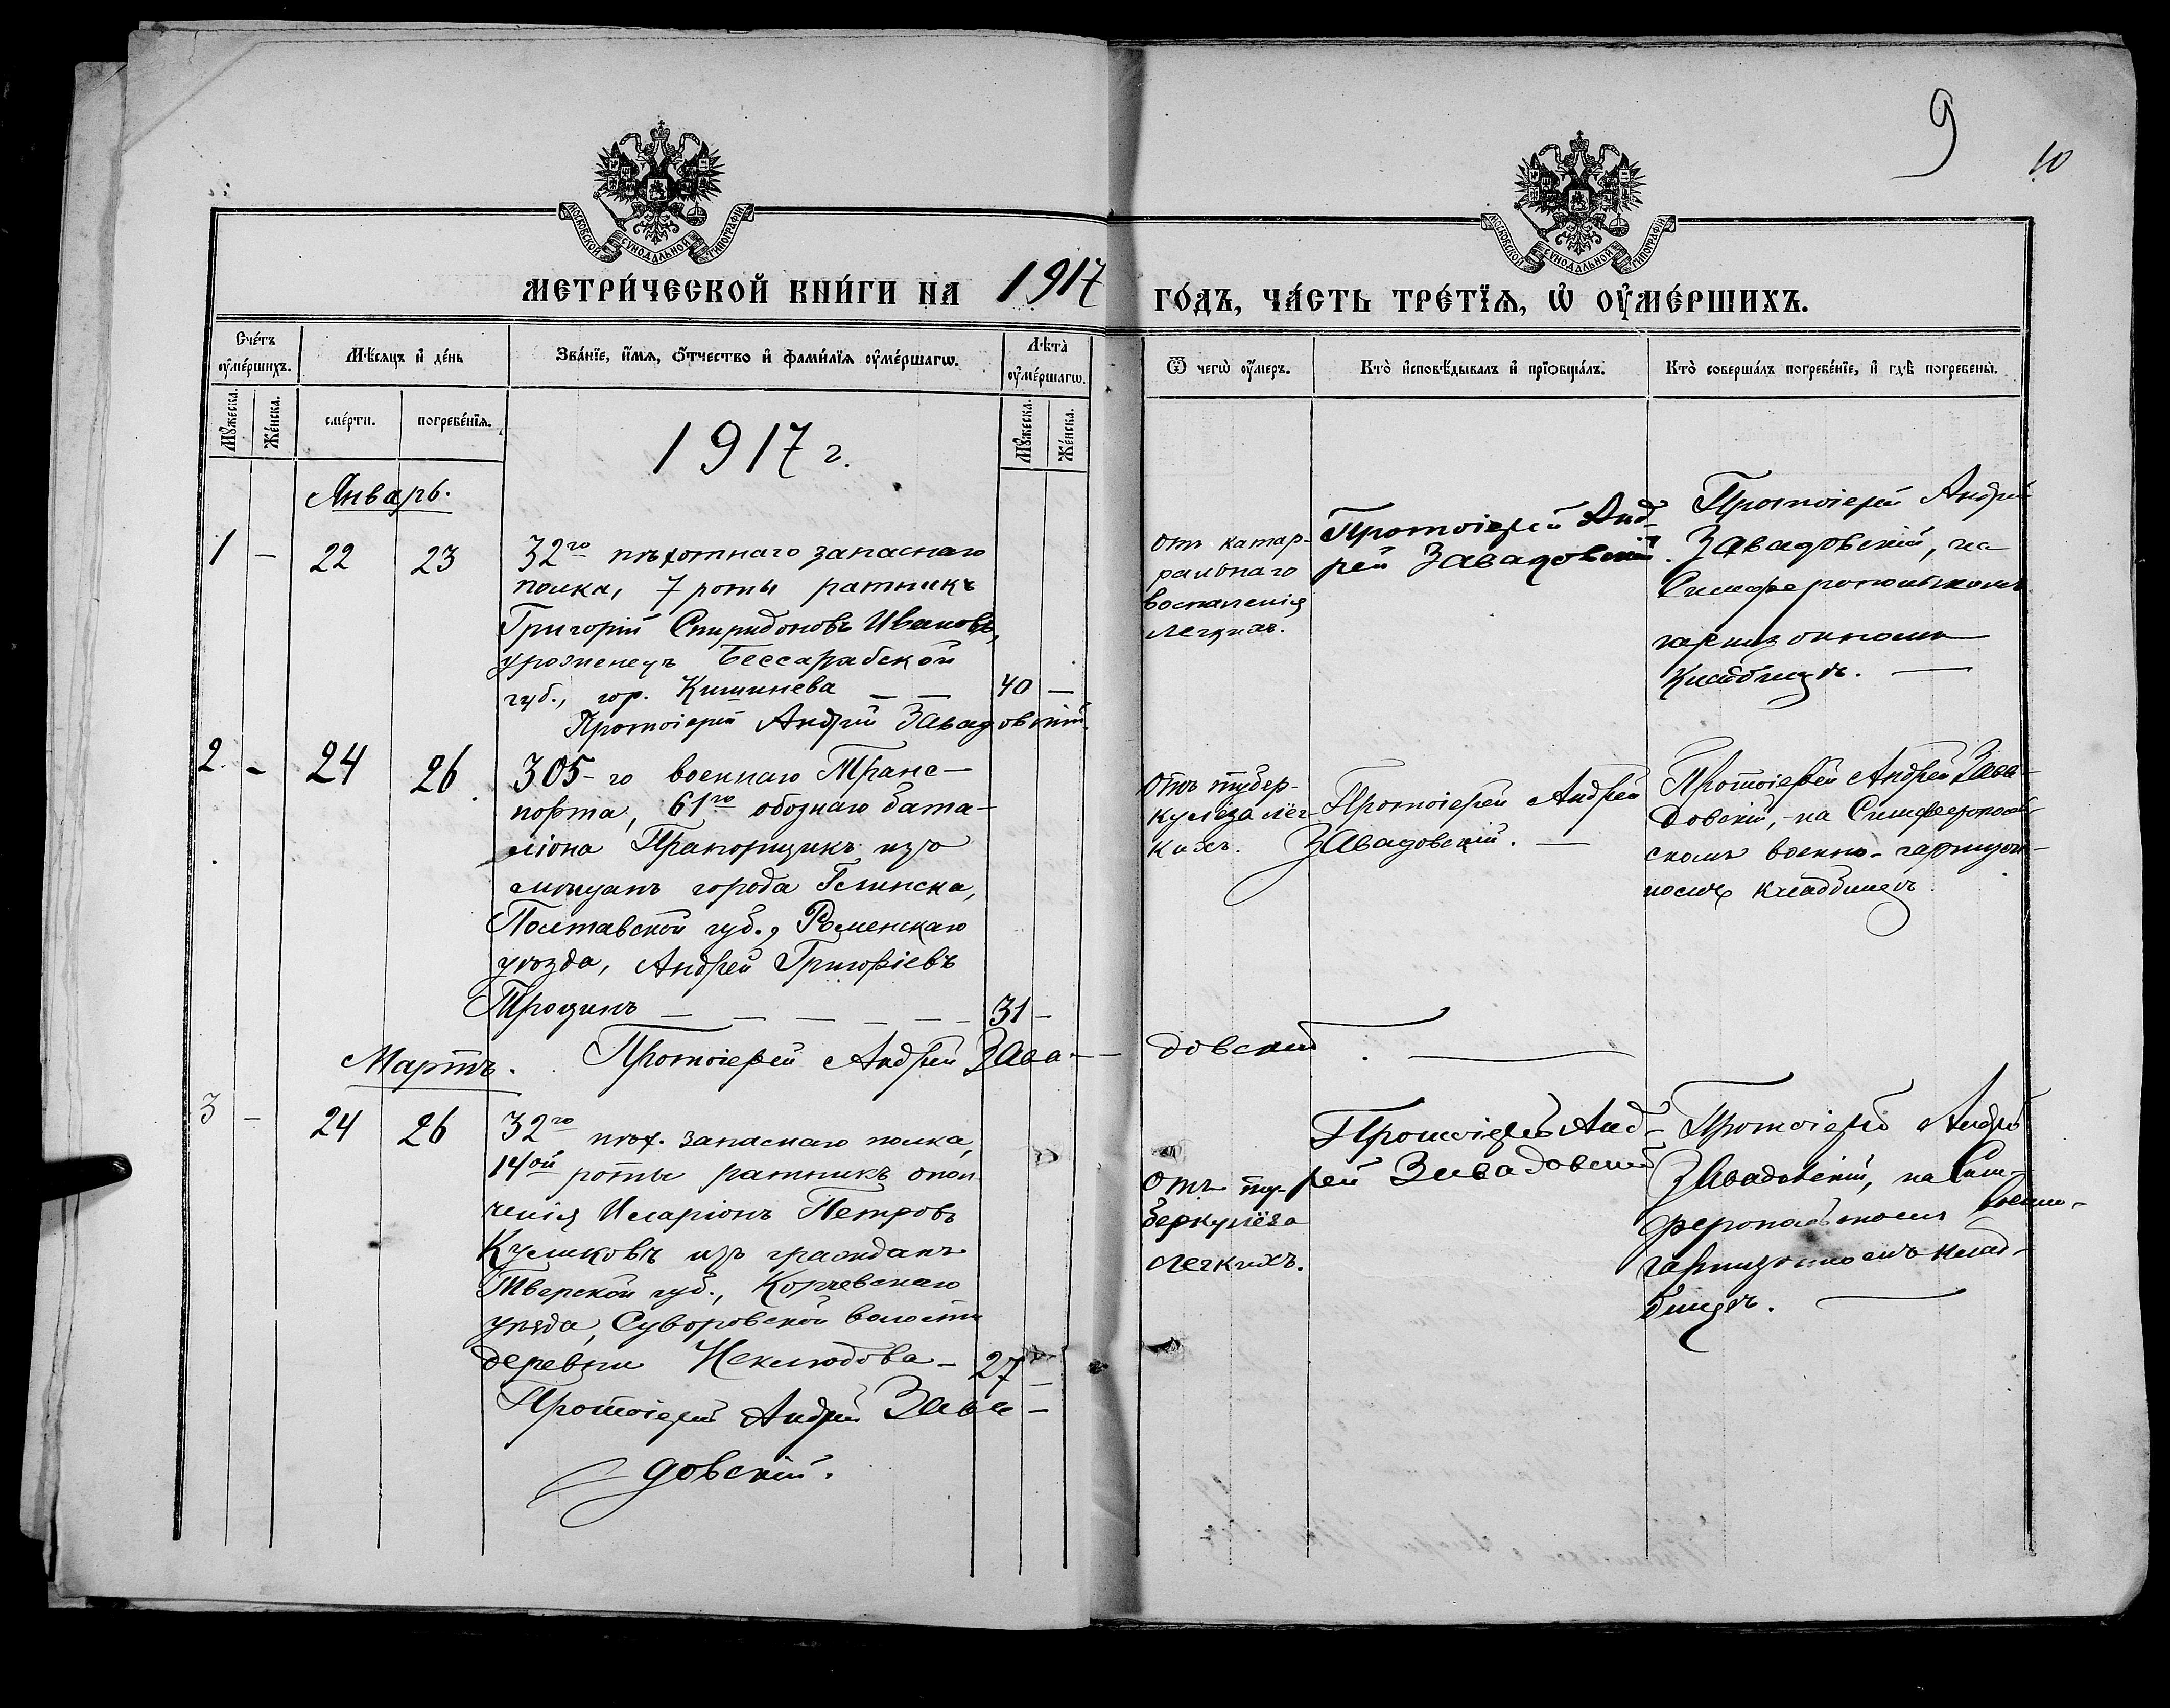 9
10
МОСКОВСКОЙ СѴНОДАЛЬНОЙ ТИПОГРАФІИ
МОСКОВСКОЙ СѴНОДАЛЬНОЙ ТИПОГРАФІИ
МЕТРИ́ЧЕСКОЙ КНИ́ГИ НА 1917 ГО́ДЪ, ЧА́СТЬ ТРЕ́ТЇѦ, Ѡ҆ ОУ҆МЕ́РШИХЪ.
Сче́тъ оу҆ме́ршихъ.
Мѣ́сѧцъ и҆ де́нь
Зва́нїе, и҆́мѧ, ѻ҆́тчество и҆ фами́лїѧ оу҆ме́ршагѡ.
Лѣ́та оу҆ме́ршагѡ.
Ѿ чегѡ̀ оу҆́меръ.
Кто̀ и҆сповѣ́дывалъ и҆ прїѡбща́лъ.
Кто̀ соверша́лъ погребе́нїе, и҆ гдѣ̀ погребены̀.
Мꙋ́жеска.
Же́нска.
сме́рти.
погребе́нїѧ.
Мꙋ́жеска.
Же́нска.
1917 г.
Январь.
1 — 22 23
32го пѣхотнаго запаснаго
полка, 7 роты ратникъ
Григорій Спиридоновъ Ивановъ,
уроженецъ Бессарабской
губ., гор. Кишинева — — 40 —
Протоіерей Андрей Завадовскій.
Отъ катар-
ральнаго
воспаленія
легкихъ.
Протоіерей Анд-
рей Завадовскій.
Протоіерей Андрей
Завадовскій, на
Симферопольскомъ
гарнизонномъ
кладбищѣ. —
2 - 24 26.
305-го военнаго Транс-
порта, 61го обознаго бата-
ліона Прапорщикъ изъ
мѣщанъ города Глинска,
Полтавской губ., Роменскаго
уѣзда, Андрей Григоріевъ
Трощинъ — — — — — — 31 -
Протоіерей Андрей Зава-
довскій. —
Отъ тубер-
кулёза лег-
кихъ.
Протоіерей Андрей
Завадовскій. —
Протоіерей Андрей Зава-
довскій, на Симферополь-
скомъ военно-гарнизон-
номъ кладбищѣ.
Мартъ.
3 - 24 26
32го пѣх. запаснаго полка,
14ой роты ратникъ опол-
ченія Иларіонъ Петровъ
Куликовъ изъ гражданъ
Тверской губ., Корчевскаго
уѣзда, Суворовской волости
деревни Неклюдова - 27 —
Протоіерей Андрей Зава-
довскій.
Отъ ту-
беркулёза
легкихъ.
Протоіерей Анд-
рей Завадовскій
Протоіерей Андрей
Завадовскій, на Сим-
феропольскомъ военно-
гарнизонномъ клад-
бищѣ. —